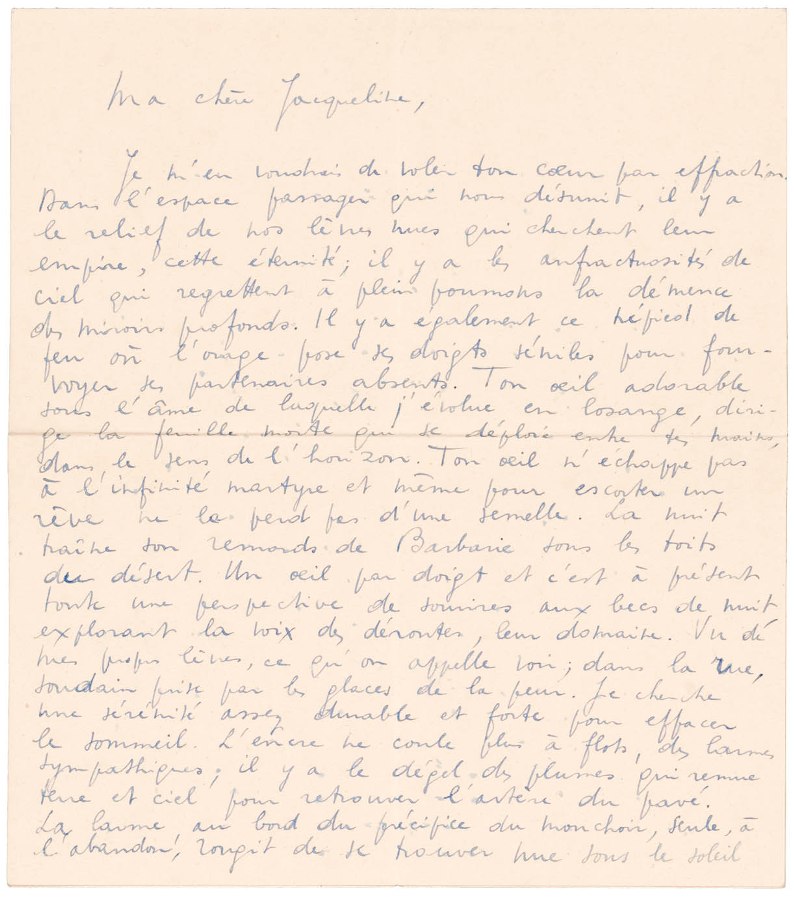 Ma chère Jacqueline,
Je m'en voudrais de voler ton cœur par effraction.
Dans l'espace passager qui nous désunit, il y a
le relief de nos lèvres nues qui cherchent leur
empire, cette éternité; il y a les anfractuosités de
ciel qui regrettent à plein poumons la démence
des miroirs profonds. Il y a également ce de
feu où l'orage pose ses doigts séniles pour four-
voyer ses partenaires absents. Ton œil adorable
sous l'âme de laquelle j'évolue en losange, diri-
ge la feuille morte qui se déploie entre tes mains,
dans le sens de l'horizon. Ton œil n'échappe pas
à l'infinité martyre et même pour escorter un
rêve ne le perd pas d'une semelle. La nuit
traîne son remords de Barbarie sous les toits
du désert. Un œil par doigt et c'est à présent
toute une perspective de sourires aux becs de nuit
explorant la voix des déroutes, leur domaine. Vu de
mes propres lèvres, ce qu'on appelle voir; dans la rue,
soudain prise par les glaces de la peur. Je cherche
une sérénité assez durable et forte pour effacer
le sommeil. L'encre ne coule plus à flots, des larmes
sympathiques; il y a le dégel des plumes qui remue
terre et ciel pour retrouver l'artère du pavé.
La larme, au bord du précipice du mouchoir, seule, à
l'abandon, rougit de se trouver nue sous le soleil